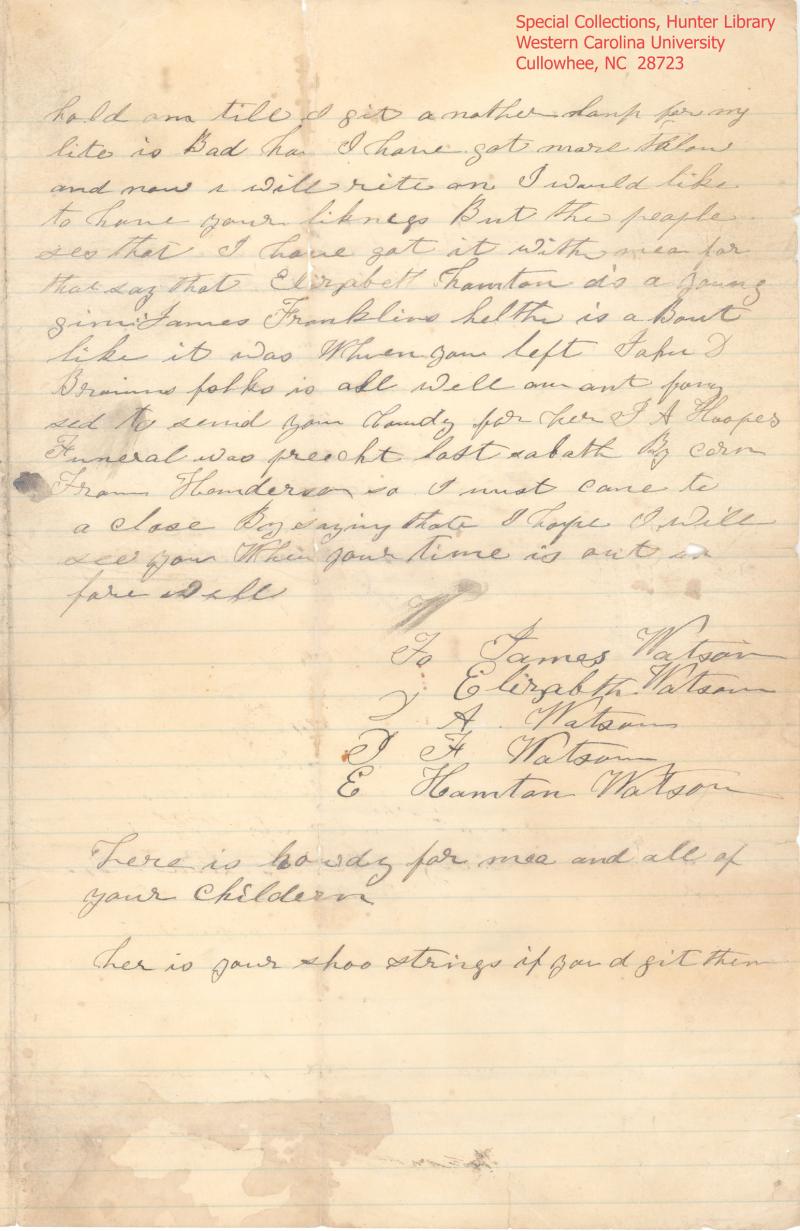 Special Collections, Hunter Library
Western Carolina University
Cullowhee, NC 28723
hold on till I git a nother lamp for my
lite is Bad ha I have got more
and now i will rite on I would like
to have your likness But the people
ses that I have got it with mea for
tha say that Elizabeth Hamton is a young
James Franklins helth is a Bout
like it was When you left John D
Browns folks is all well our ant
sed to send you howdy for her J A Hoopes
Funeral was preecht last sabath By
From Henderson so I must come to
a close By saying that I hope I will
see you When your time is out so
fare well
To James Watson
Elizabth Watson
J A Watson
J F Watson
E Hamton Watson
here is howdy for mea and all of
your Childern
her is your shoo strings if you d git them